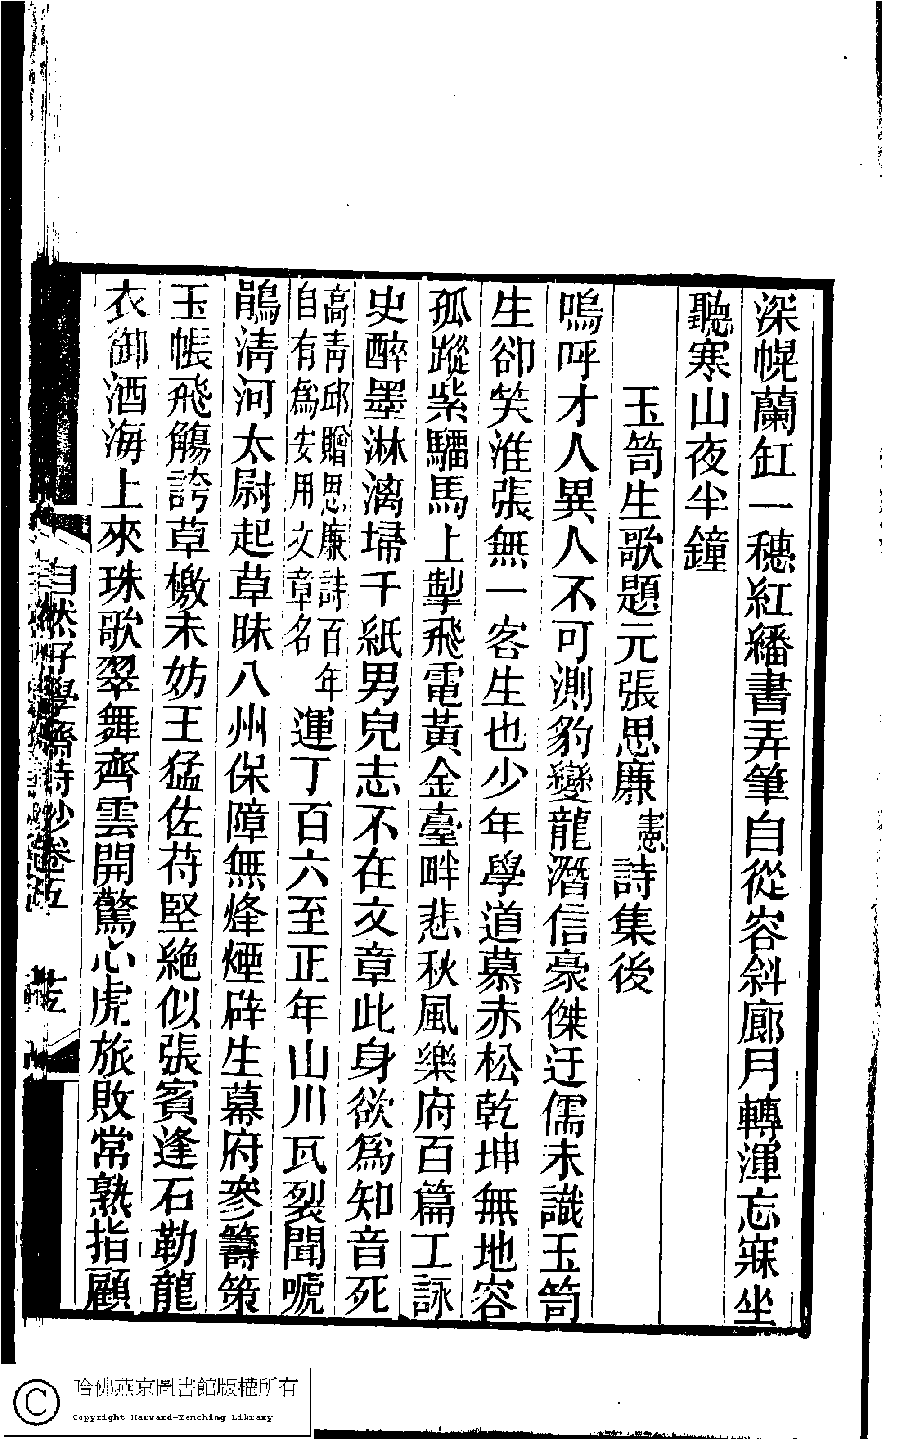 深幌蘭缸一穗紅繙書弄筆自從容斜廊月轉渾忘寐坐
聽寒山夜半鐘
玉笥生歌題元張思廉憲詩集後
嗚呼才人異人不可測豹變龍潛信豪傑迂儒未識玉笥
生卻笑淮張無一客生也少年學道慕赤松乾坤無地容
孤蹤紫騮馬上掣飛電黃金臺畔悲秋風樂府百篇工詠
史醉墨淋漓埽千紙男兒志不在文章此身欲為知音死
高青邱贈思廉詩百年
自有為安用文章名
運丁百六至正年山川瓦裂聞嗁
鵑清河太尉起草昧八州保障無烽煙辟生幕府參籌策
玉帳飛觴誇草檄未妨王猛佐苻堅絕似張賓逢石勒龍
衣御酒海上來珠歌翠舞齊雲開驚心虎旅敗常熟指顧
自然好學齋詩鈔卷五
哈佛燕京圖書館版權所有
Copyright Harvard-Yenching Library